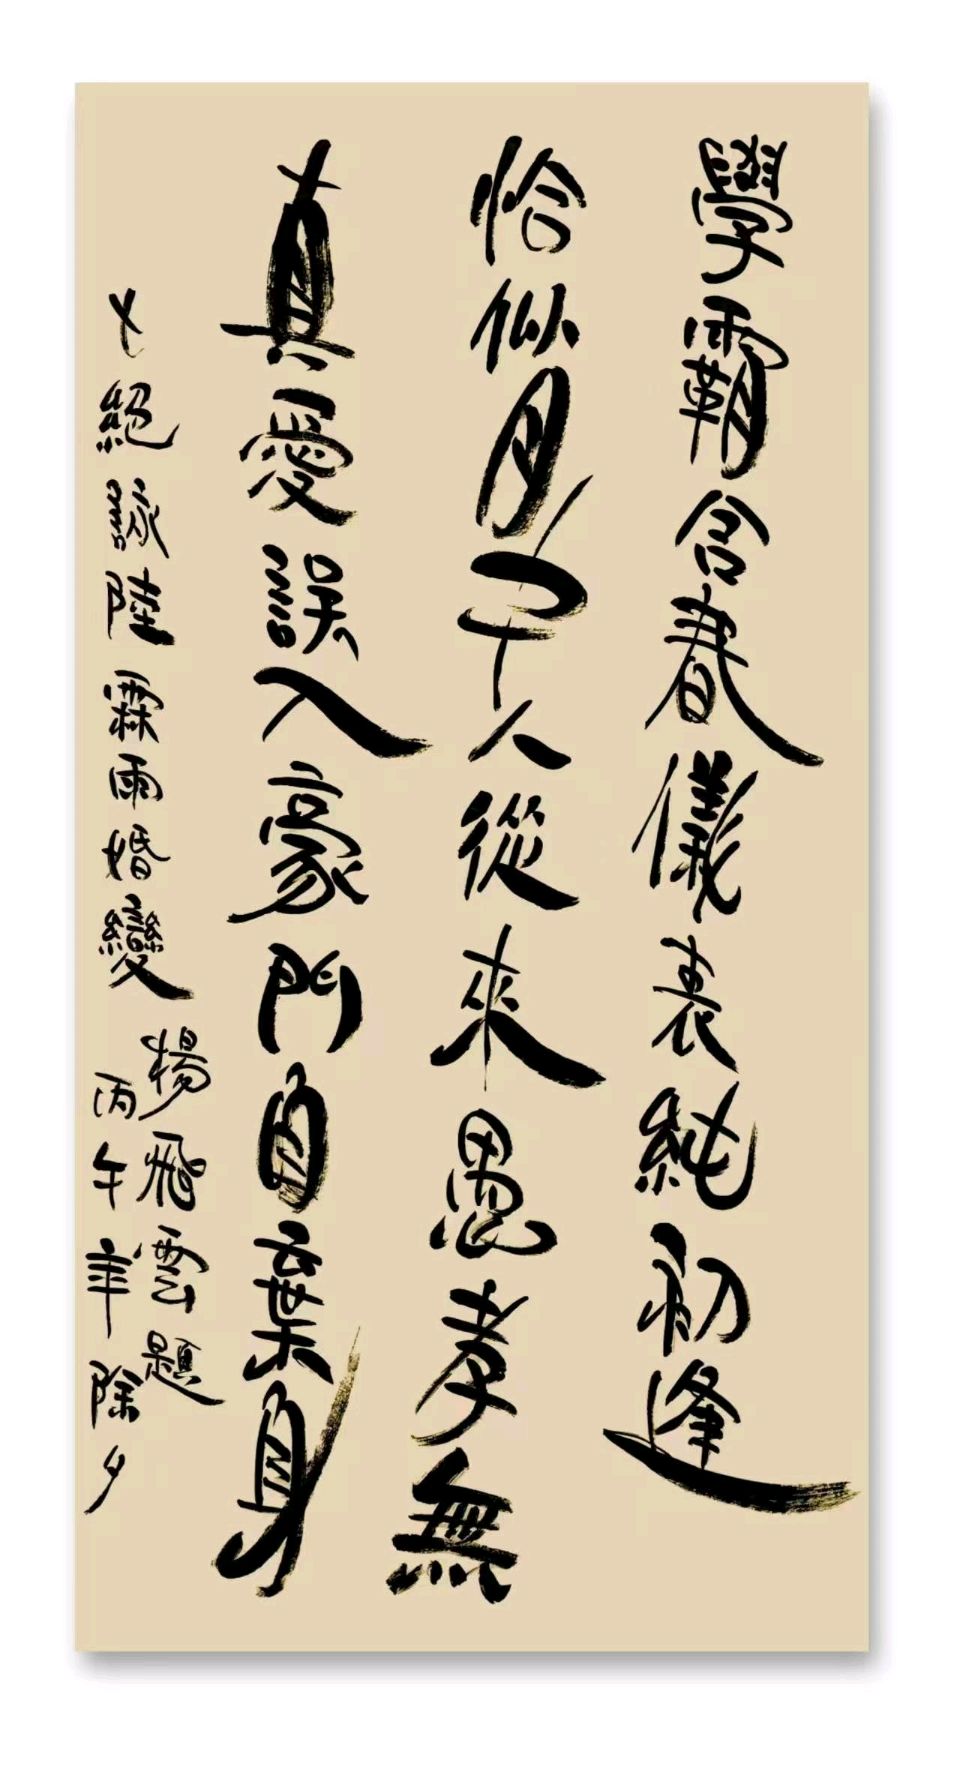 學霸含春儀表純初逢
恰似月中人從來愚孝無
真愛誤入豪門自棄身
七絕詠陸霖雨婚變
楊飛雲題
丙午年除夕